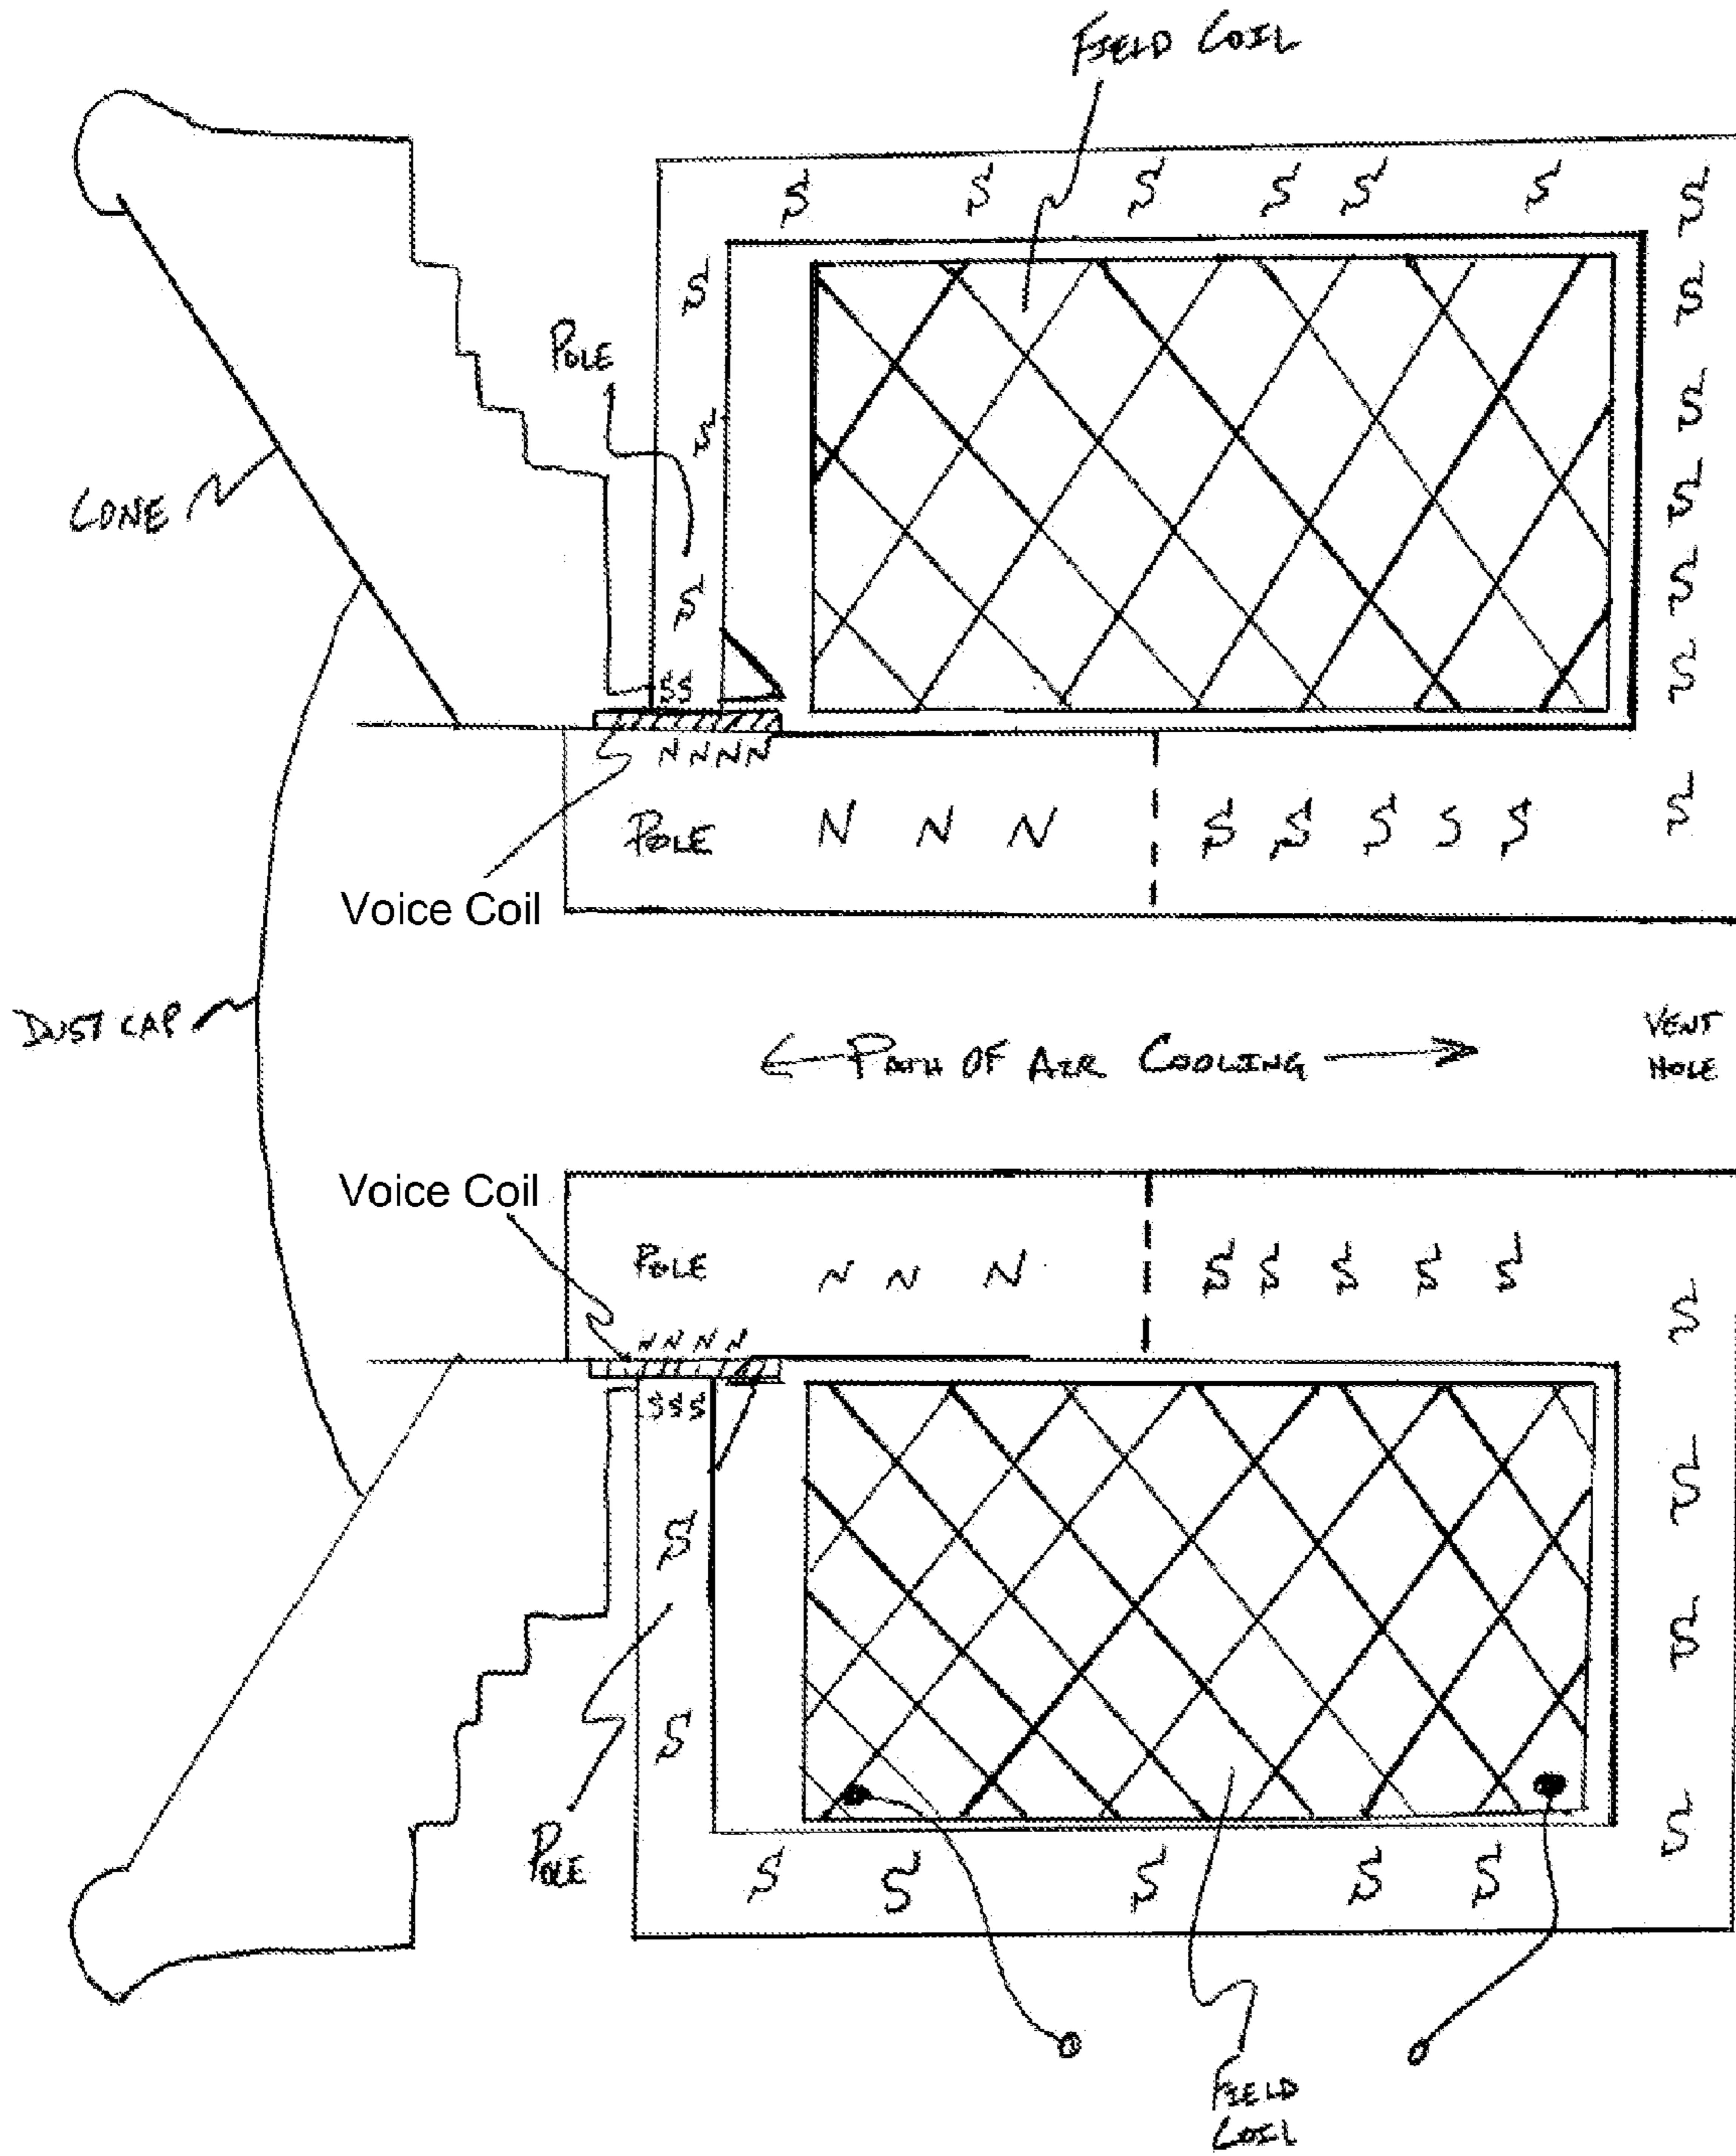 FIELD COIL
S S S S S S S
S S
POLE
S S
CONE
S
S S
SS
S
NNNN
POLE N N N S S S S S S
Voice Coil
DUST CAP
← PATH OF AIR COOLING →
VENT
HOLE
Voice Coil
POLE N N N S S S S S S
NNNN
SSS
S
S
S
S
POLE
S S S S S S
FIELD
COIL